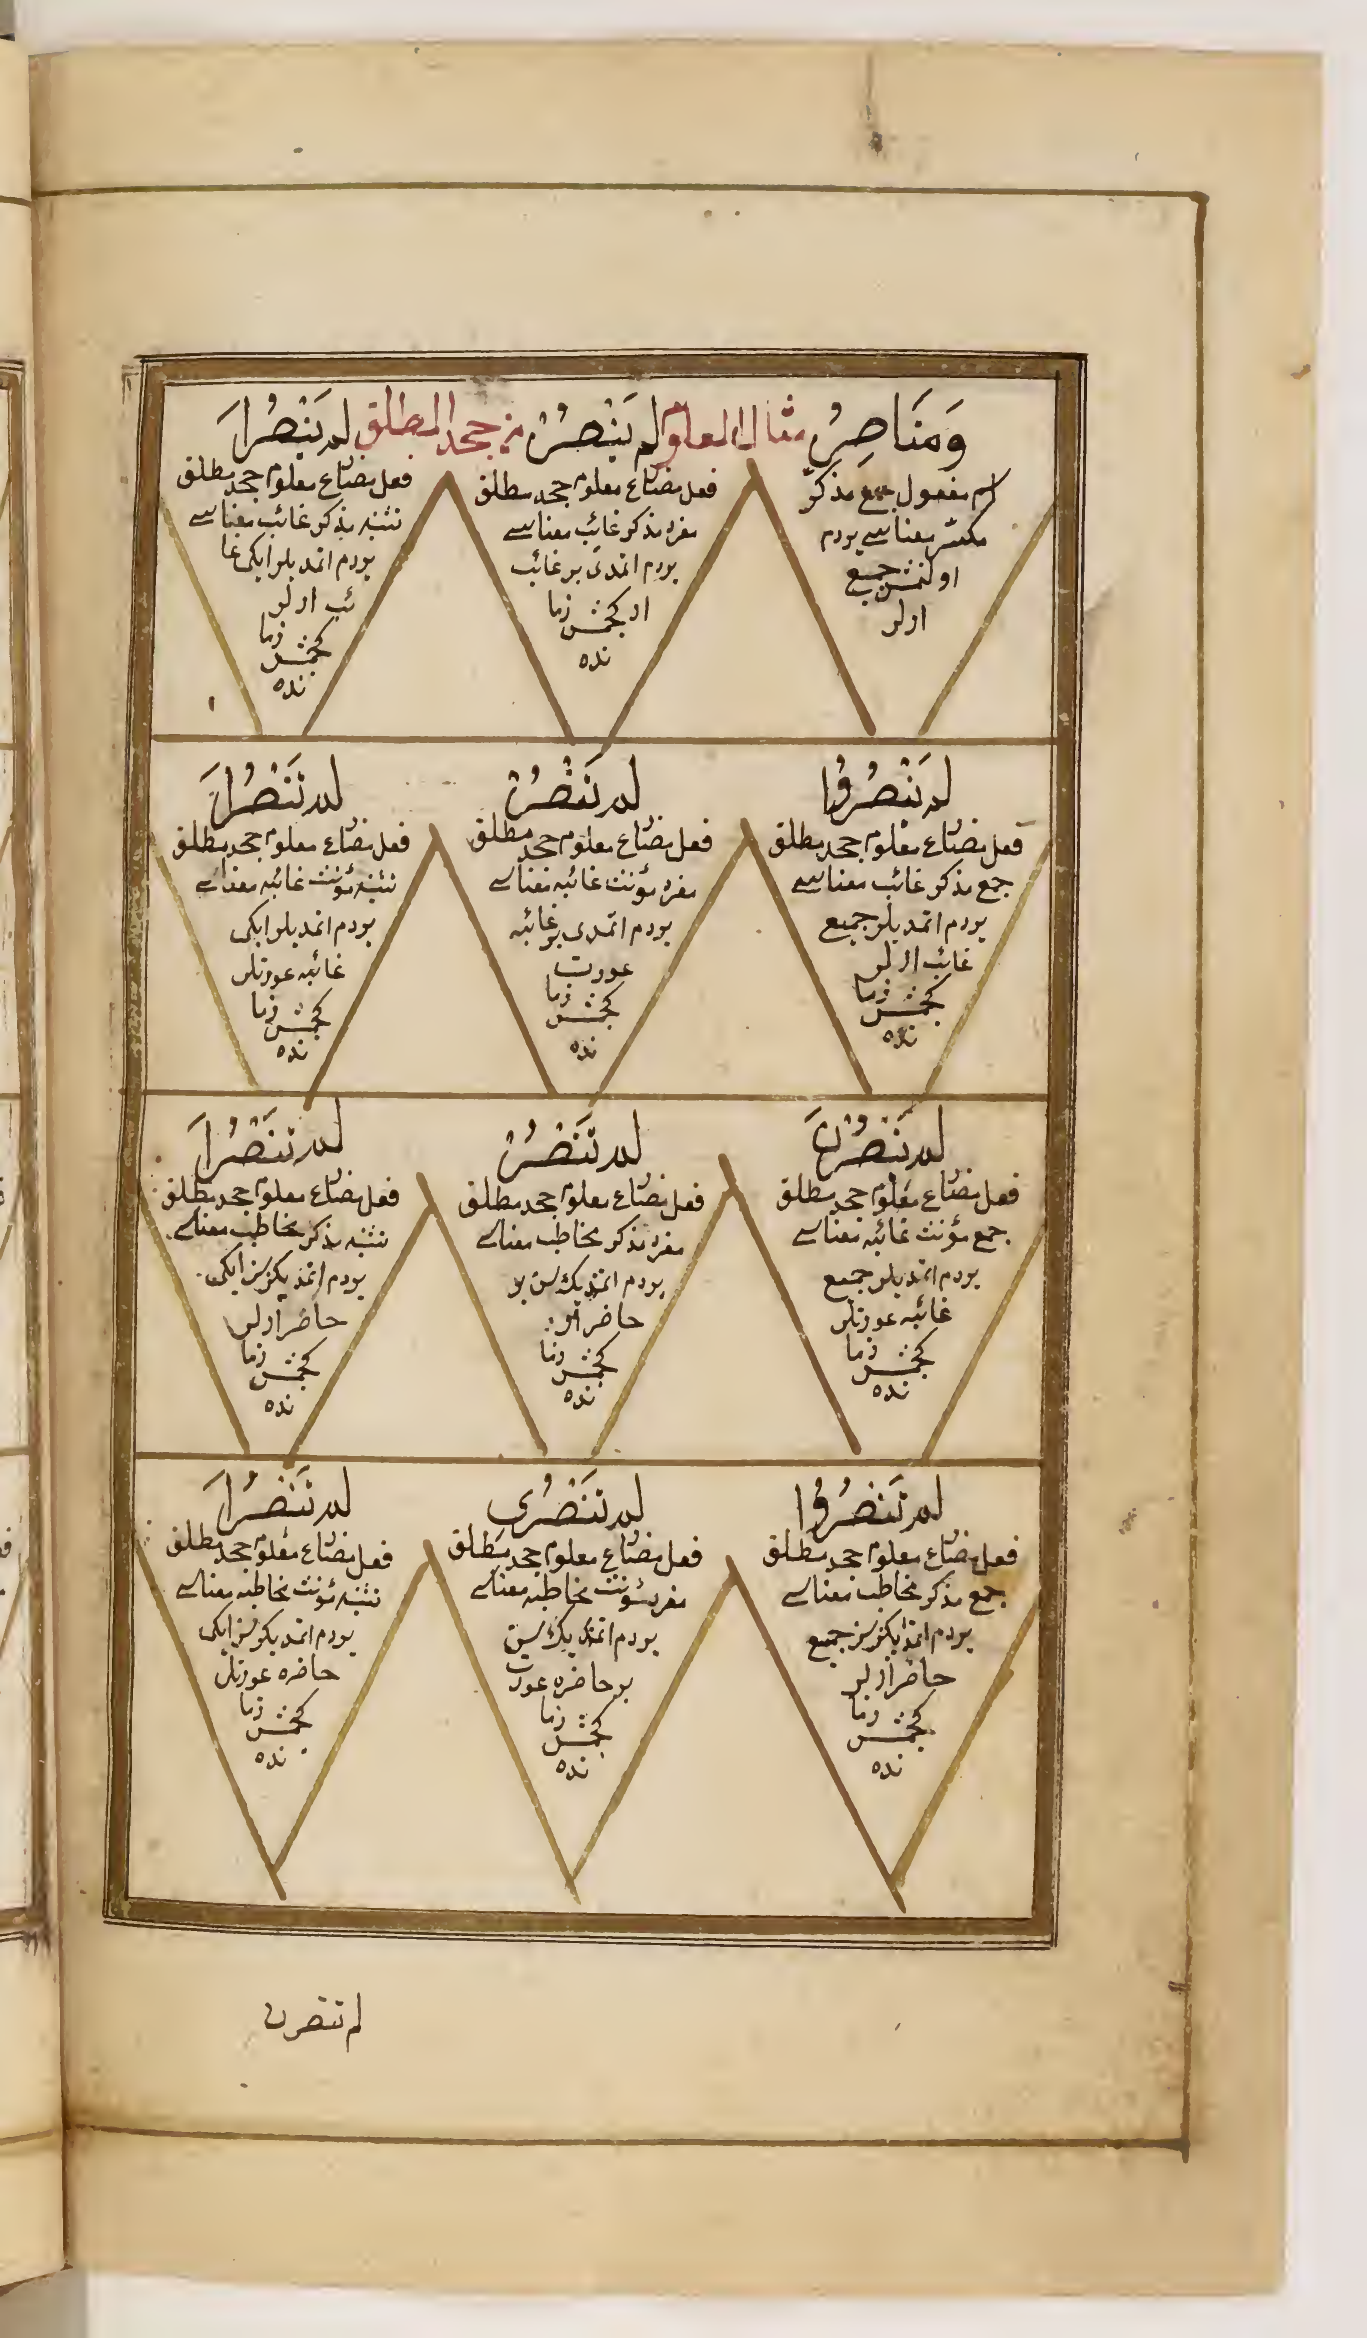 وَمَنَاصِرُ مثال المعلوم لم يَنْصُرْ من جحد المطلق لم يَنْصُرَا
اسم مفعول جمع مذكر
مكسر معناسى يردم
اولنمش جميع
ارلر
فعل مضارع معلوم جحد مطلق
مفرد مذكر غائب معناسى
يردم اتمدى بر غائب
ار كچمش زما
نده
فعل مضارع معلوم جحد مطلق
تثنيه مذكر غائب معناسى
يردم اتمديلر ايكى غا
ئب ارلر
كچمش زما
نده
لم يَنْصُرُوا
فعل مضارع معلوم جحد مطلق
جمع مذكر غائب معناسى
يردم اتمديلر جميع
غائب ارلر
كچمش زما
نده
لم تَنْصُرْ
فعل مضارع معلوم جحد مطلق
مفرد مؤنث غائبه معناسى
يردم اتمدى بر غائبه
عورت
كچمش زما
نده
لم تَنْصُرَا
فعل مضارع معلوم جحد مطلق
تثنيه مؤنث غائبه معناسى
يردم اتمديلر ايكى
غائبه عورتلر
كچمش زما
نده
لم يَنْصُرْنَ
فعل مضارع معلوم جحد مطلق
جمع مؤنث غائبه معناسى
يردم اتمديلر جميع
غائبه عورتلر
كچمش زما
نده
لم تَنْصُرْ
فعل مضارع معلوم جحد مطلق
مفرد مذكر مخاطب معناسى
يردم اتمديك سن بر
حاضر ار
كچمش زما
نده
لم تَنْصُرَا
فعل مضارع معلوم جحد مطلق
تثنيه مذكر مخاطب معناسى
يردم اتمديكز سز ايكى
حاضر ارلر
كچمش زما
نده
لم تَنْصُرُوا
فعل مضارع معلوم جحد مطلق
جمع مذكر مخاطب معناسى
يردم اتمديكز سز جميع
حاضر ارلر
كچمش زما
نده
لم تَنْصُرِى
فعل مضارع معلوم جحد مطلق
مفرد مؤنث مخاطبه معناسى
يردم اتمديك سن
بر حاضره عورت
كچمش زما
نده
لم تَنْصُرَا
فعل مضارع معلوم جحد مطلق
تثنيه مؤنث مخاطبه معناسى
يردم اتمديكز سز ايكى
حاضره عورتلر
كچمش زما
نده
لم تنصرن